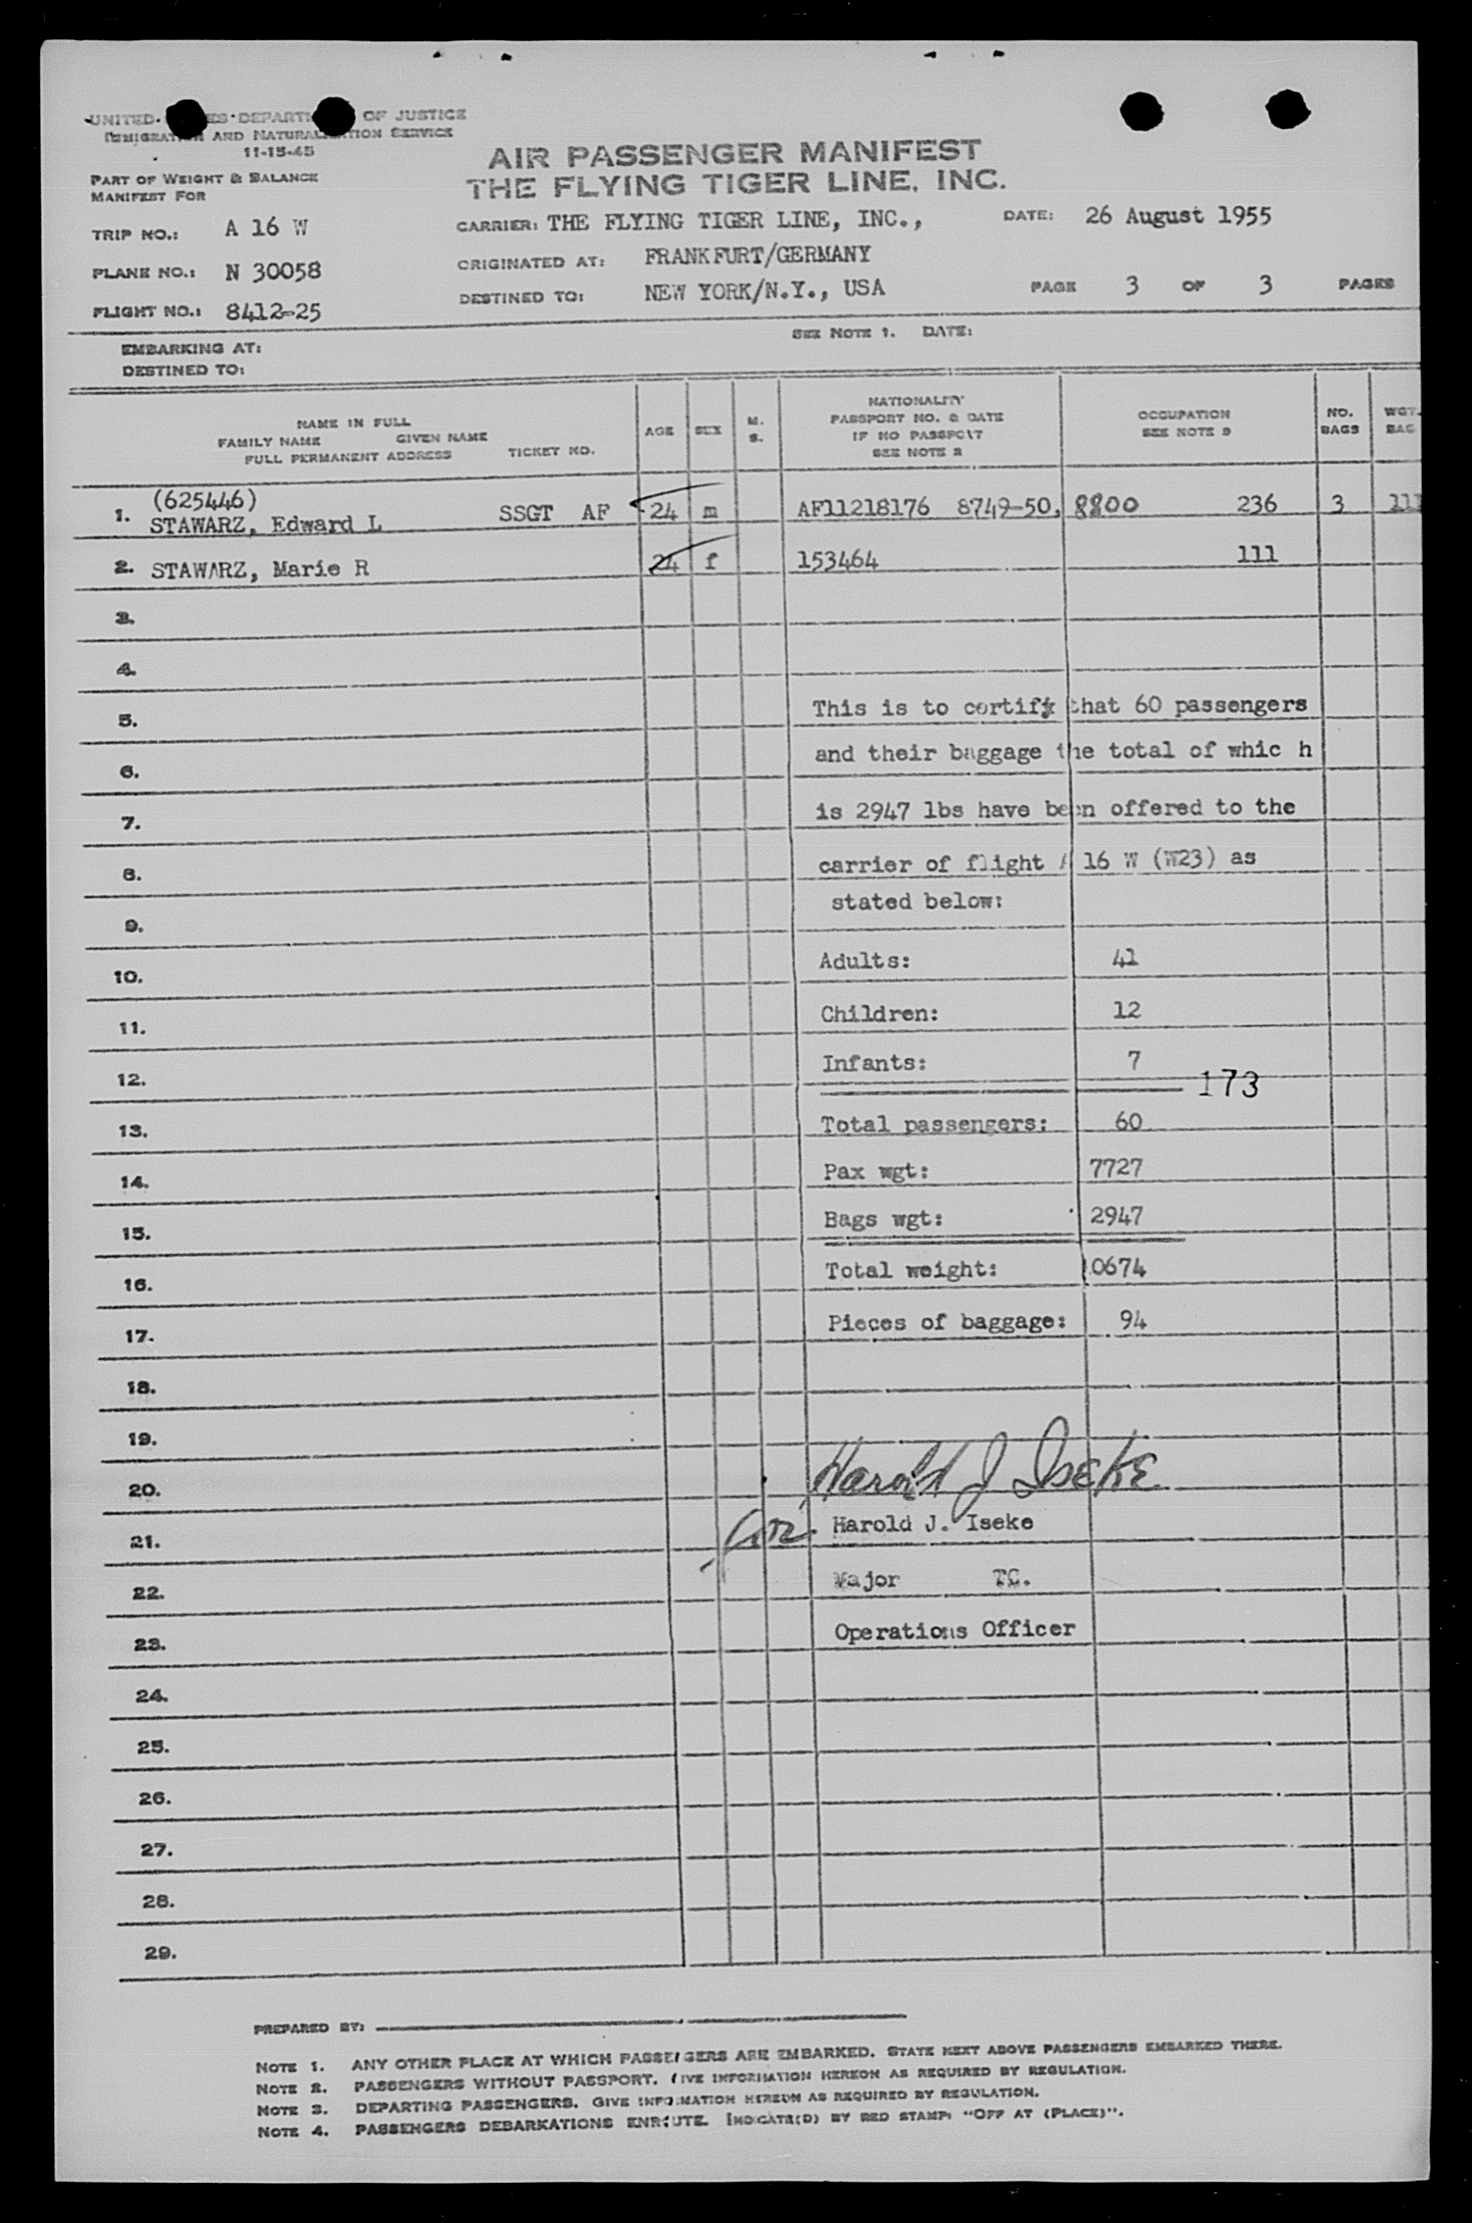 UNITED ES DEPART OF JUSTICE
IMMIGRATION AND NATURALIZATION SERVICE
11-15-45
PART OF WEIGHT & BALANCE
MANIFEST FOR
AIR PASSENGER MANIFEST
THE FLYING TIGER LINE, INC.
TRIP NO.: A 16 W
CARRIER: THE FLYING TIGER LINE, INC.,
DATE: 26 August 1955
PLANE NO.: N 30058
ORIGINATED AT: FRANKFURT/GERMANY
FLIGHT NO.: 8412-25
DESTINED TO: NEW YORK/N.Y., USA
PAGE 3 OF 3 PAGES
EMBARKING AT:
SEE NOTE 1. DATE:
DESTINED TO:
NAME IN FULL
FAMILY NAME GIVEN NAME
FULL PERMANENT ADDRESS TICKET NO.
AGE
SEX
M.
S.
NATIONALITY
PASSPORT NO. & DATE
IF NO PASSPORT
SEE NOTE 2
OCCUPATION
SEE NOTE 3
NO.
BAGS
WGT.
BAG
(625446)
1. STAWARZ, Edward L SSGT AF 24 m AF11218176 8749-50, 8800 236 3 111
2. STAWARZ, Marie R 24 f 153464 111
3.
4.
5. This is to certify that 60 passengers
6. and their baggage the total of whic h
7. is 2947 lbs have been offered to the
8. carrier of flight A 16 W (W23) as
9. stated below:
10. Adults: 41
11. Children: 12
12. Infants: 7
173
13. Total passengers: 60
14. Pax wgt: 7727
15. Bags wgt: 2947
16. Total weight: 10674
17. Pieces of baggage: 94
18.
19.
20. Harold J Iseke
21. for Harold J. Iseke
22. Major TC.
23. Operations Officer
24.
25.
26.
27.
28.
29.
PREPARED BY:
NOTE 1. ANY OTHER PLACE AT WHICH PASSENGERS ARE EMBARKED. STATE NEXT ABOVE PASSENGERS EMBARKED THERE.
NOTE 2. PASSENGERS WITHOUT PASSPORT. GIVE INFORMATION HEREON AS REQUIRED BY REGULATION.
NOTE 3. DEPARTING PASSENGERS. GIVE INFORMATION HEREON AS REQUIRED BY REGULATION.
NOTE 4. PASSENGERS DEBARKATIONS ENROUTE. INDICATE(D) BY RED STAMP: "OFF AT (PLACE)".